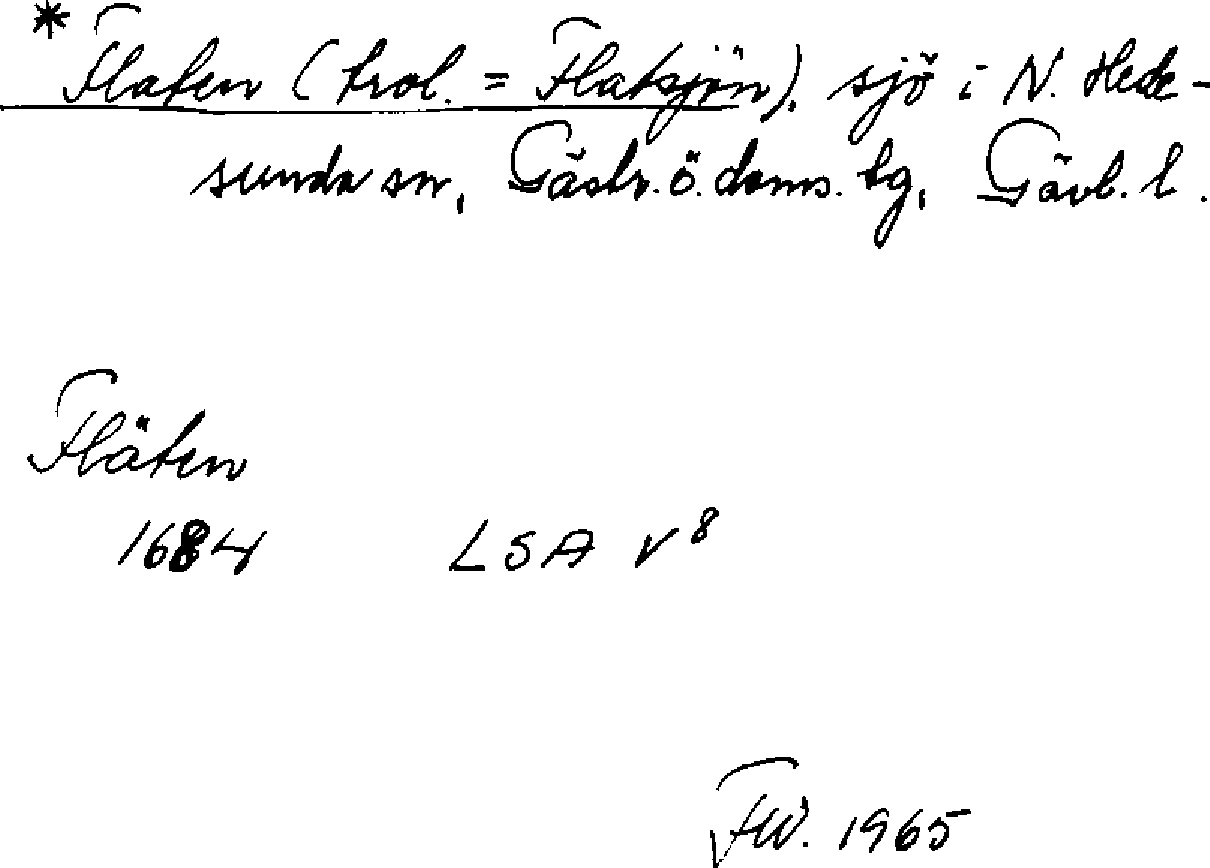 * Flaten (trol. = Flatsjön), sjö i N. Hede-
sunda sn, Gästr. ö. doms. tg, Gävl. l.
Fläten
1684 LSA V⁸
FW. 1965